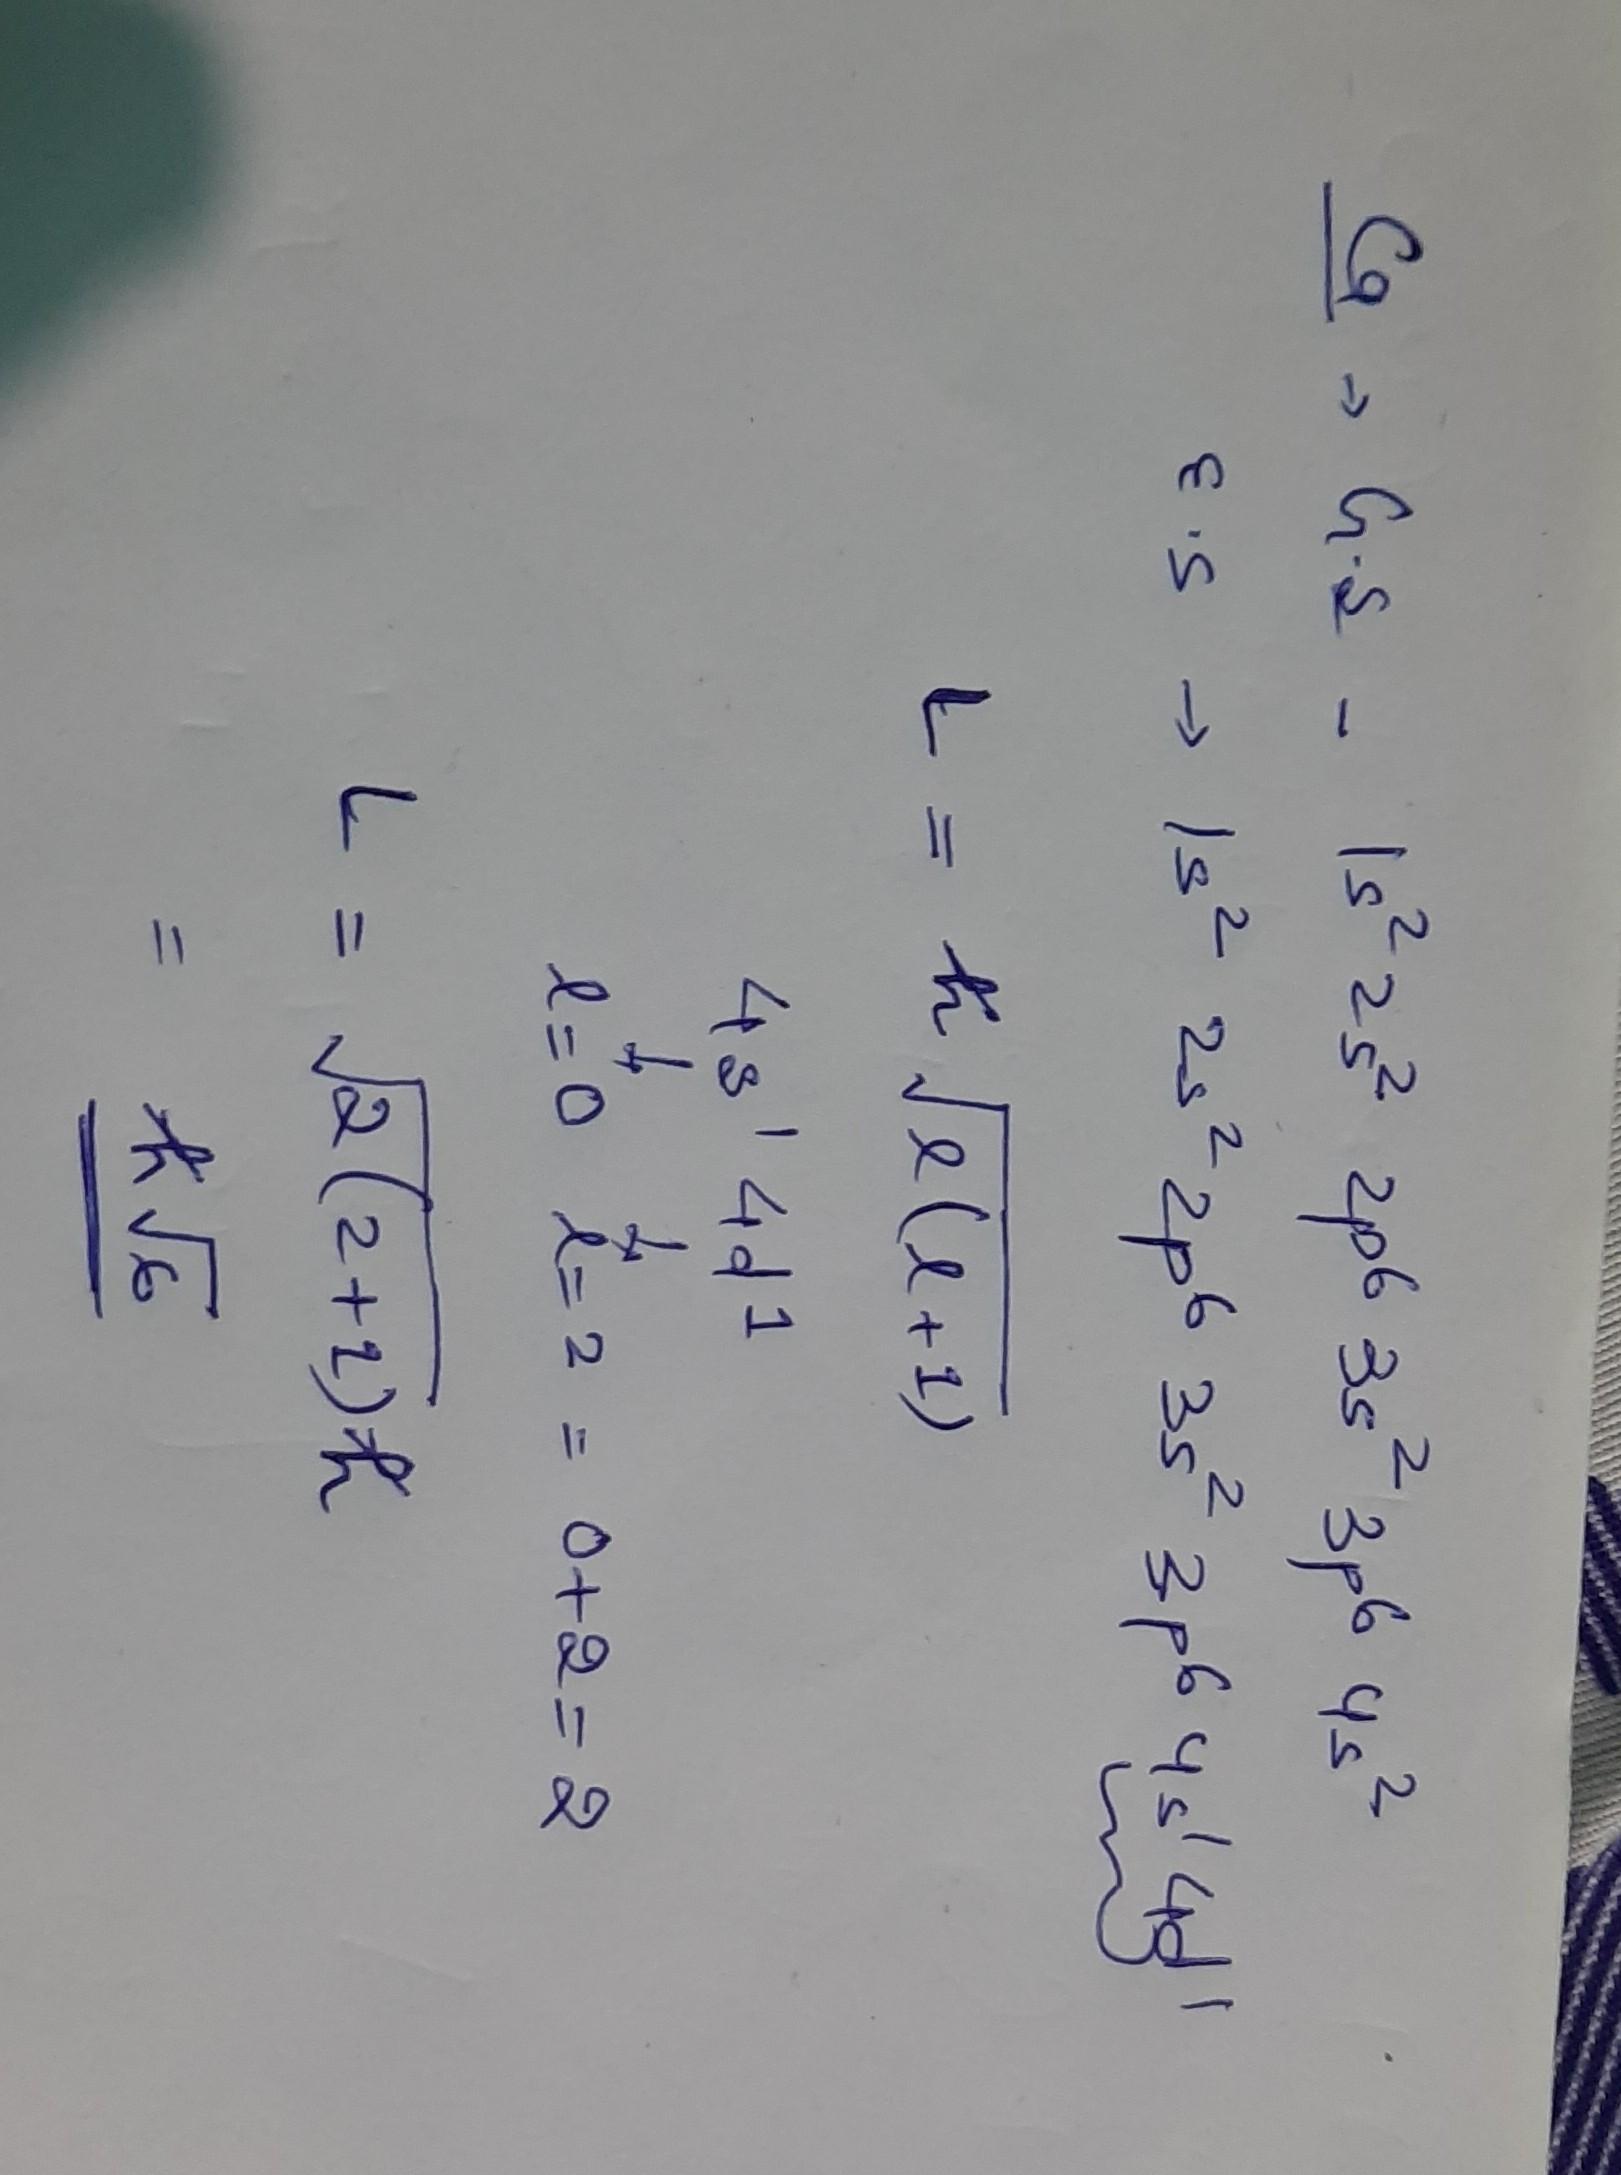 Ca → G.S - 1s² 2s² 2p⁶ 3s² 3p⁶ 4s²
E.S → 1s² 2s² 2p⁶ 3s² 3p⁶ 4s¹ 4d¹
L = ħ √l(l+1)
4s¹ 4d¹
↓ ↓
l=0 l=2 = 0+2=2
L = √2(2+1) ħ
= ħ√6